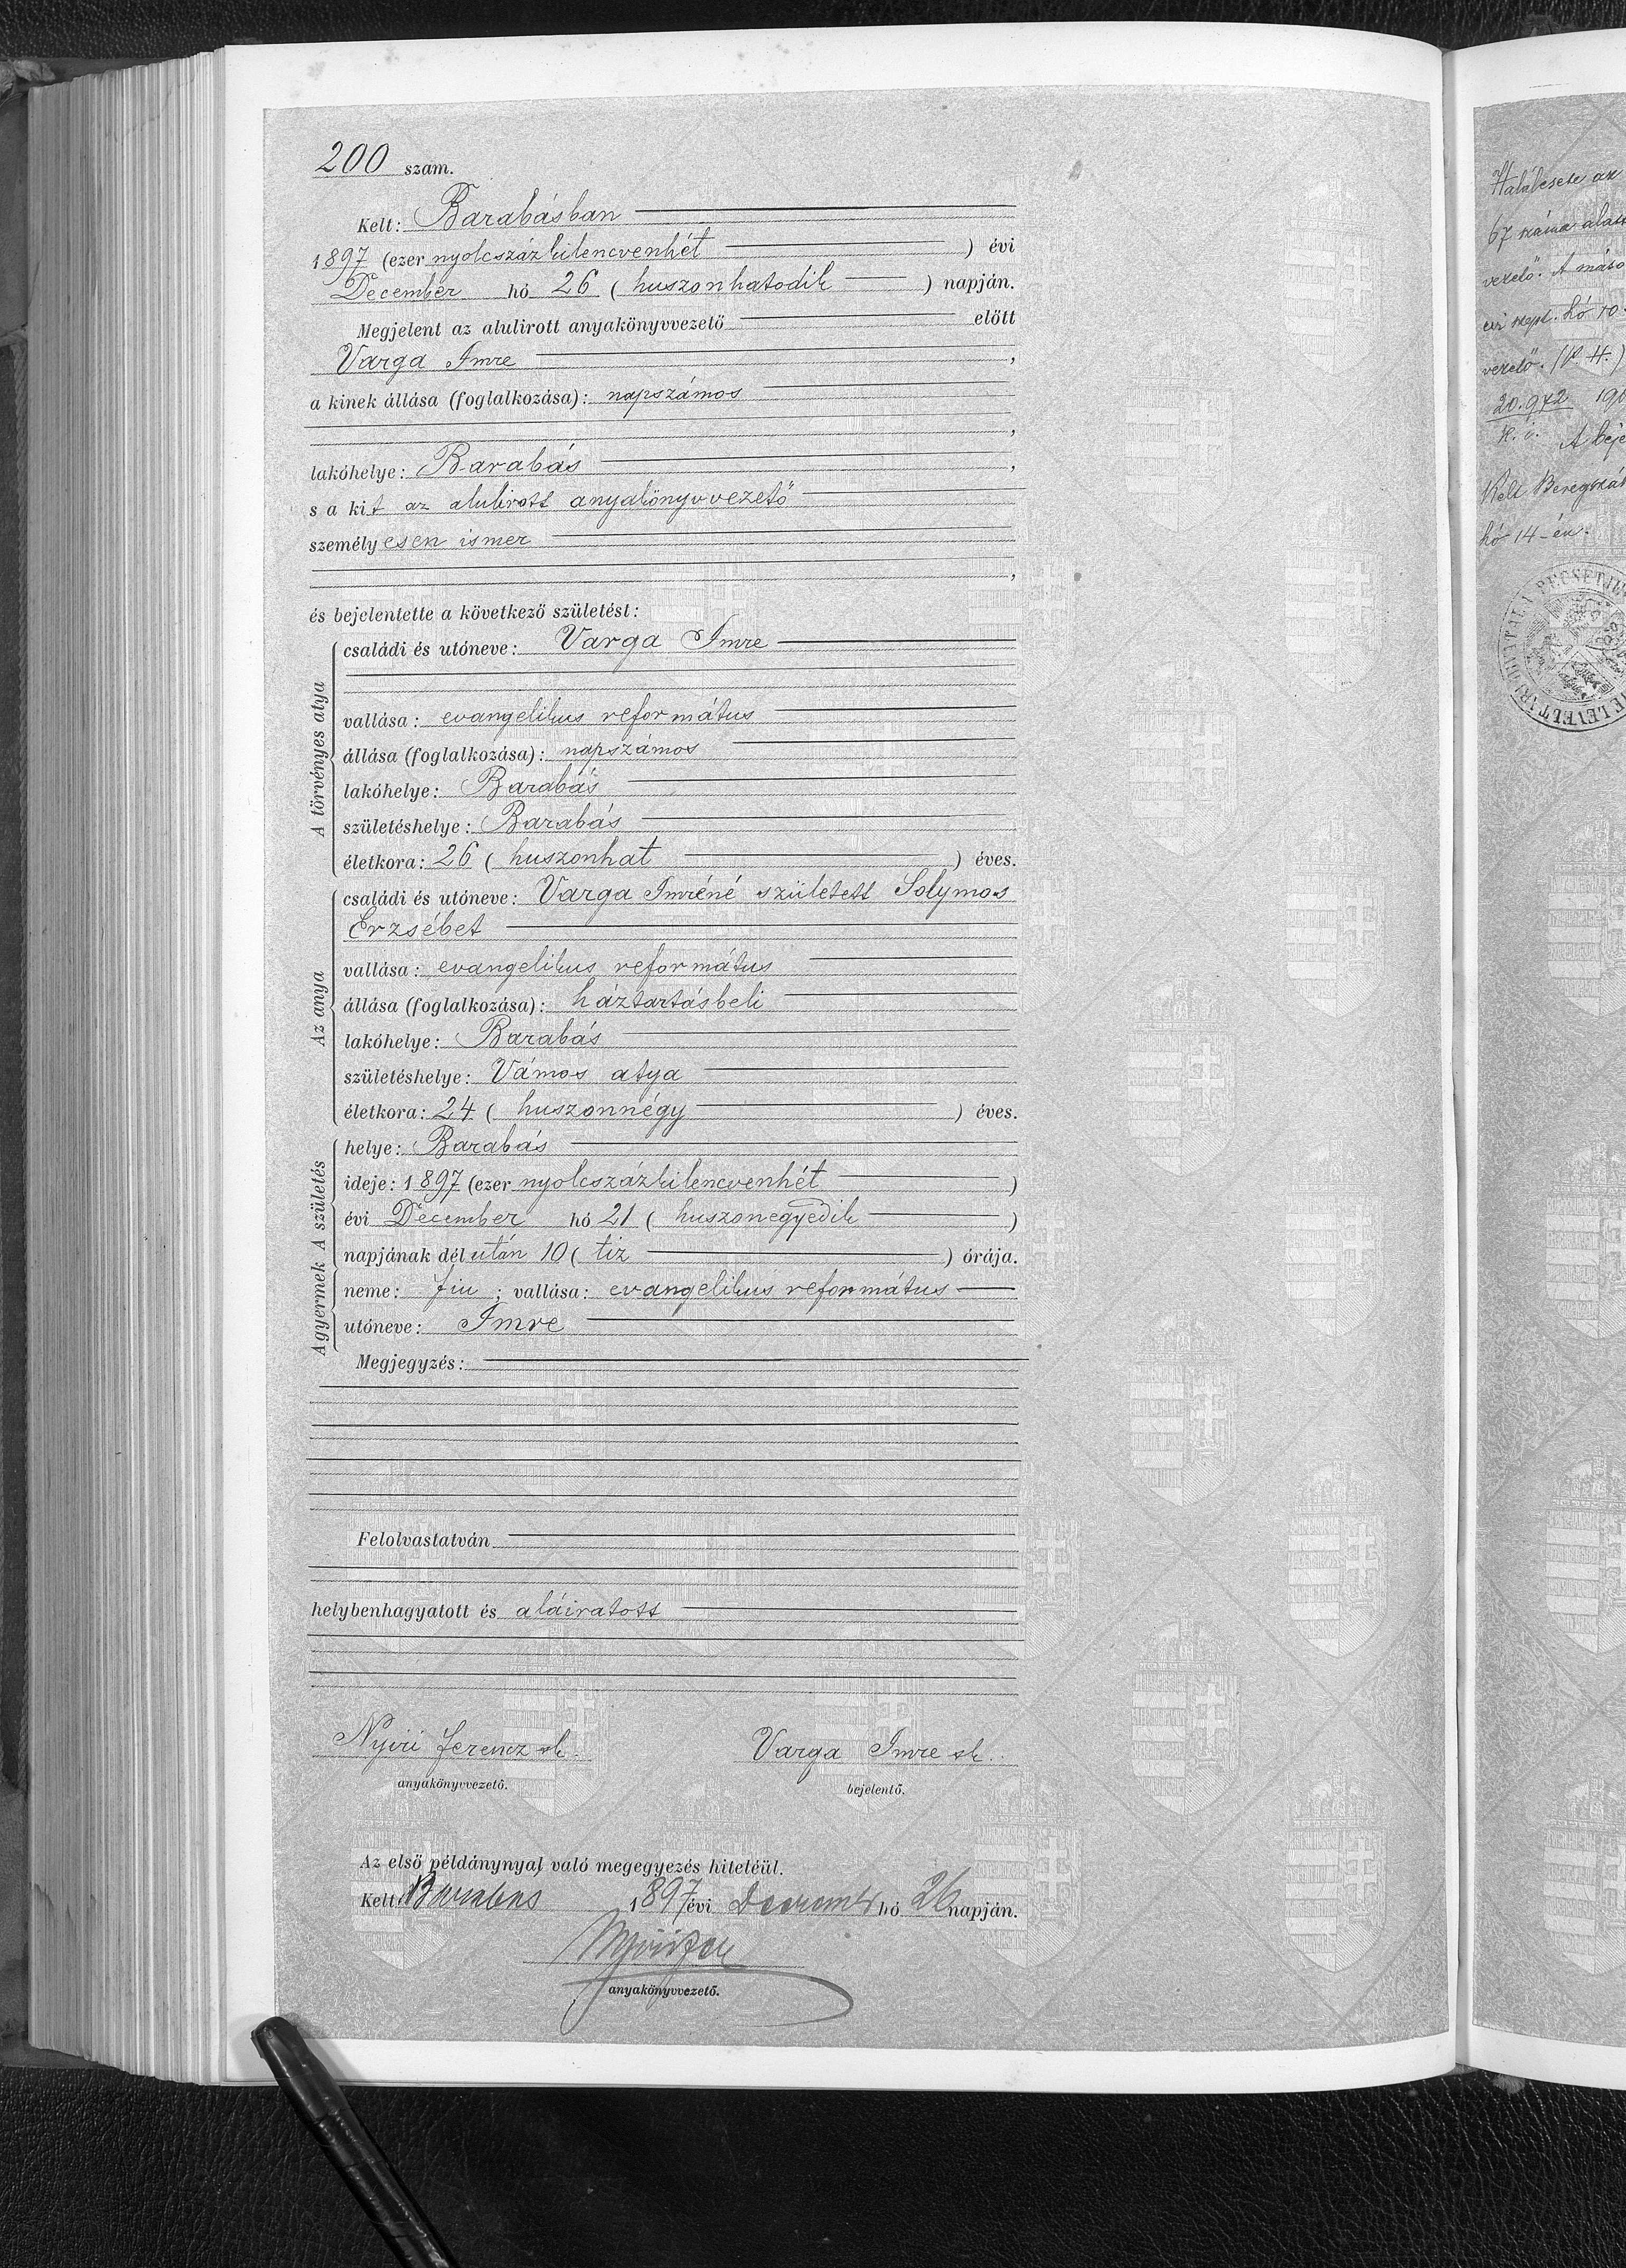 200 szám.
Kelt: Barabásban
1897 (ezer nyolcszázkilencvenhét) évi
December hó 26 (huszonhatodik) napján.
Megjelent az alulirott anyakönyvvezető előtt
Varga Imre,
a kinek állása (foglalkozása): napszámos
,
lakóhelye: Barabás,
s a kit az alulirott anyakönyvvezető
személyesen ismer
,
és bejelentette a következő születést:
A törvényes atya
családi és utóneve: Varga Imre
vallása: evangelikus református
állása (foglalkozása): napszámos
lakóhelye: Barabás
születéshelye: Barabás
életkora: 26 (huszonhat) éves.
Az anya
családi és utóneve: Varga Imréné született Solymos
Erzsébet
vallása: evangelikus református
állása (foglalkozása): háztartásbeli
lakóhelye: Barabás
születéshelye: Vámos atya
életkora: 24 (huszonnégy) éves.
A születés
helye: Barabás
ideje: 1897 (ezer nyolcszázkilencvenhét)
évi December hó 21 (huszonegyedik)
napjának dél után 10 (tiz) órája.
A gyermek
neme: fiu; vallása: evangelikus református
utóneve: Imre
Megjegyzés:
Felolvastatván
helybenhagyatott és aláiratott
Nyiri Ferencz sk. Varga Imre sk.
anyakönyvvezető. bejelentő.
Az első példánynyal való megegyezés hiteléül.
Kelt Barabás 1897 évi December hó 26 napján.
anyakönyvvezető.
Halálesete az
67 száma alatt
vezető. A máso
évi szept. hó 10
vezető. (P. H.)
20.972 190
A beje
Kelt Beregszás
hó 14-én.